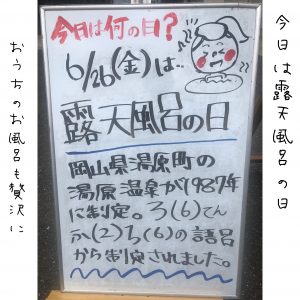 今日は露天風呂の日
今日は何の日?
6/26(金)は‥
露天風呂の日
岡山県湯原町の
湯原温泉が1987年
に制定。ろ(6)てん
ふ(2)ろ(6)の語呂
から制定されました。
おうちのお風呂も贅沢に